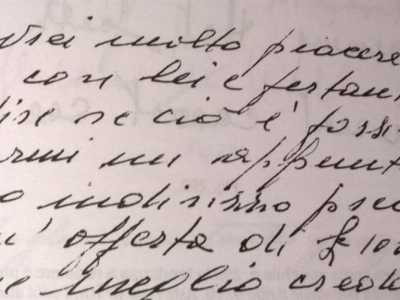 vrei molto piacere
con lei e pertan
dire se ciò è poss
rmi un appunt
o indirizzo pre
n' offerta di
e meglio cred